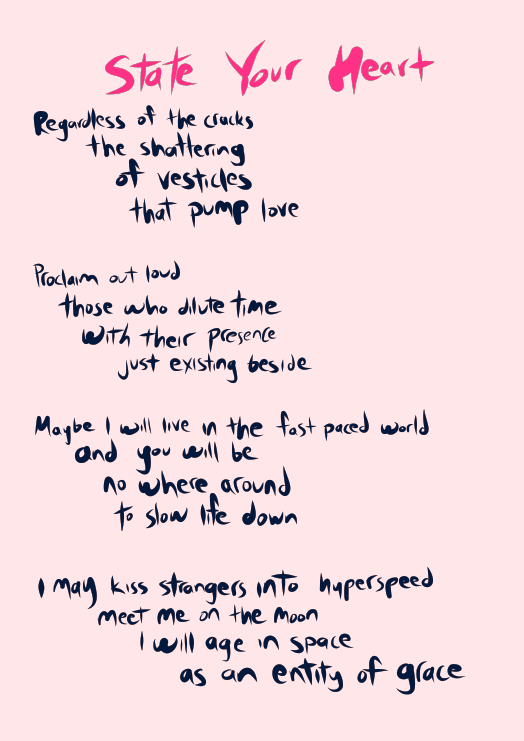 State Your Heart
Regardless of the cracks
the shattering
of vesticles
that pump love
Proclaim out loud
those who dilute time
with their presence
just existing beside
Maybe I will live in the fast paced world
and you will be
no where around
to slow life down
I may kiss strangers into hyperspeed
meet me on the moon
I will age in space
as an entity of grace